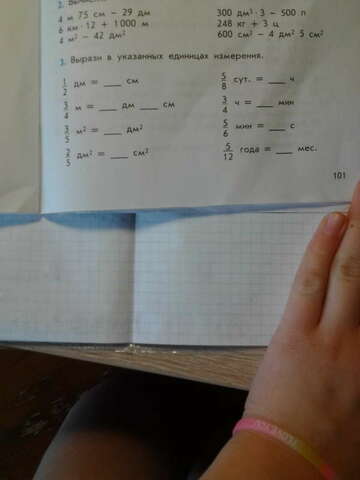 2.
4 м 75 см − 29 дм 300 дм³ · 3 − 500 л
6 км · 12 + 1 000 м 248 кг + 3 ц
4 м² − 42 дм² 600 см² − 4 дм² 5 см²
3. Вырази в указанных единицах измерения.
1/2 дм = ___ см 5/8 сут. = ___ ч
3/4 м = ___ дм ___ см 3/4 ч = ___ мин
3/5 м² = ___ дм² 5/6 мин = ___ с
2/5 дм² = ___ см² 5/12 года = ___ мес.
101
I LOVE YOU